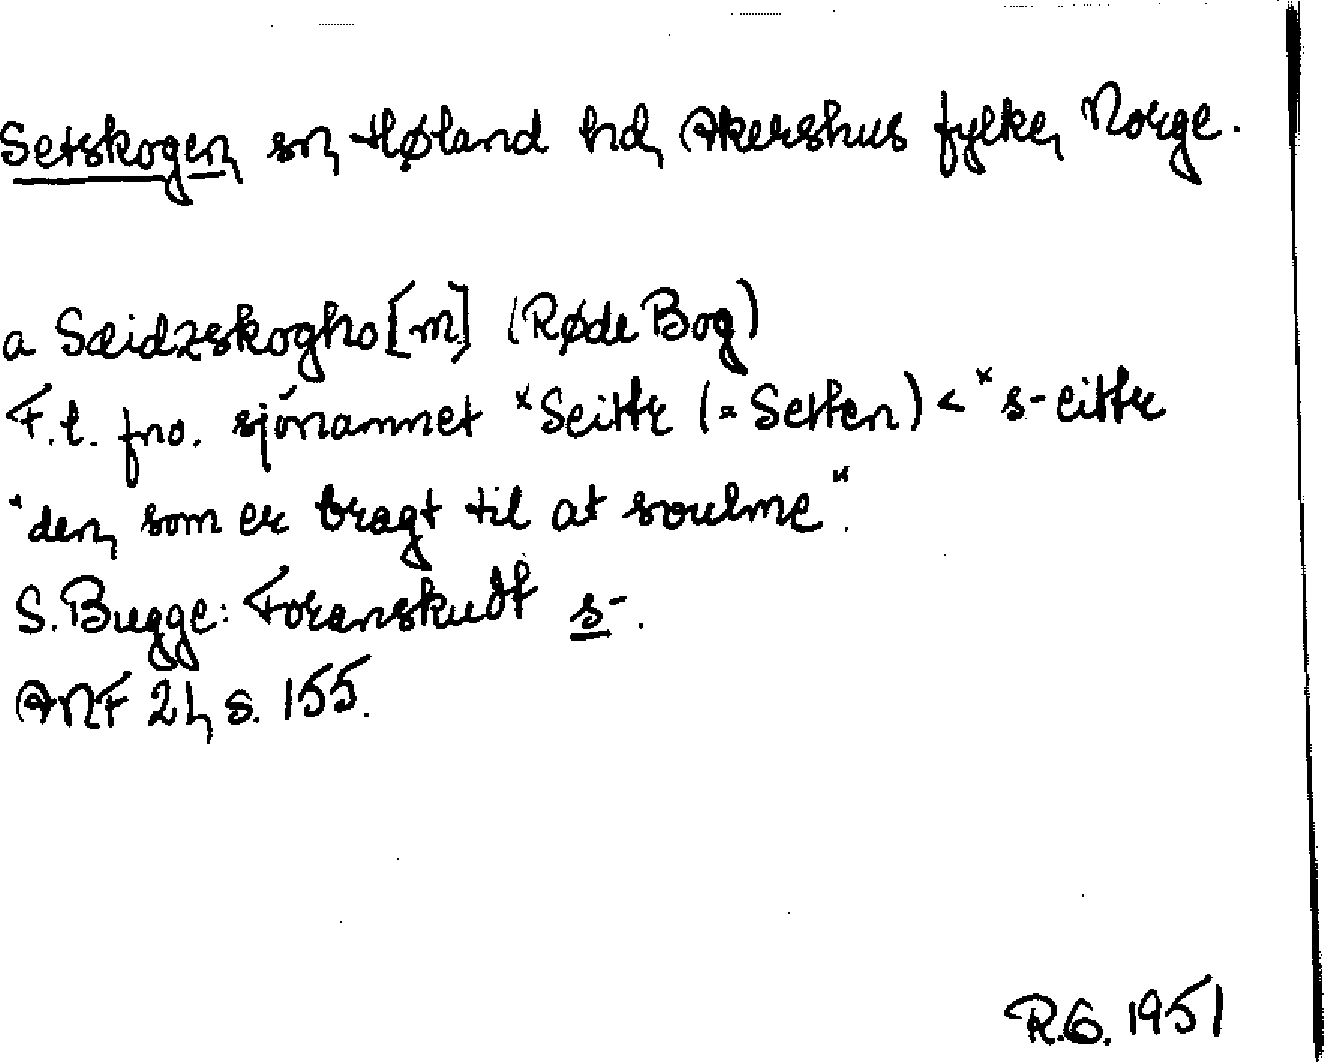 Setskogen, sn, Høland hd, Akershus fylke, Norge.
a Sæidzskogho[m] (Røde Bog)
F.l. fno. sjönamnet *Seittr (= Setten) < *s-eittr
"den, som er bragt til at svulme".
S. Bugge: Foranskudt s-.
ANF 21, s. 155.
R.G. 1951